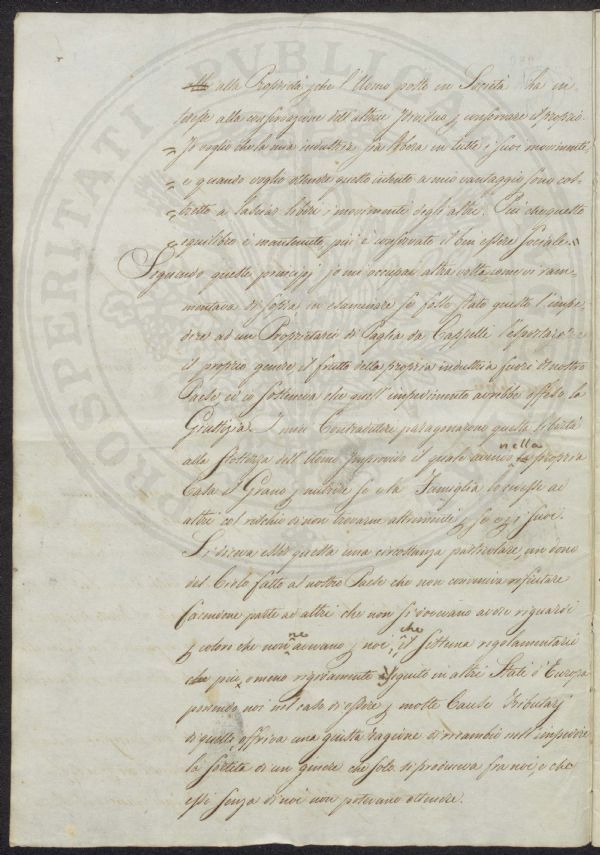 alla Proprietà che l'Uomo posto in Società ha in
teresse alla conservazione dell'altrui Individuo p conservare il proprio
Io voglio che la mia industria sia libera in tutti i suoi movimenti,
e quando voglio ottenere questo intento a mio vantaggio sono cos-
tretto a lasciar liberi i movimenti degli altri. Più che questo
equilibrio è mantenuto, più è conservato il ben essere Sociale =
Seguendo questi principj io mi occupai altra volta come vi ram-
mentava di sopra in esaminare se fosse stato questo l'impe-
dire ad un Proprietario di Paglia da Cappelli l'esportare
il proprio genere il frutto della propria industria fuori di nostro
Paese ed io sosteneva che quell'impedimento avrebbe offeso la
Giustizia. I miei Contradittori paragonarono questa libertà
alla stoltezza dell'Uomo improvido il quale avendo nella propria
Casa il Grano p nutrire se e la Famiglia lo cedesse ad
altri col rischio di non trovarne altrimenti p se e p i suoi.
Si diceva esser questa una circostanza particolare, un dono
del Cielo fatto al nostro Paese che non conveniva rigettare
facendone parte ad altri che non si dovevano avere riguardi
p coloro che non ne avevano p noi, che il sistema regolamentario
più o meno rigidamente seguito in altri Stati d'Europa
ponendo noi nel caso di essere p molte Cause Tributarj
di quelli offriva una giusta ragione di ricambio nell'impedire
la sortita di un genere che solo si produceva fra noi, e che
essi senza di noi non potevano ottenere.
PROSPERITATI PVBLICAE